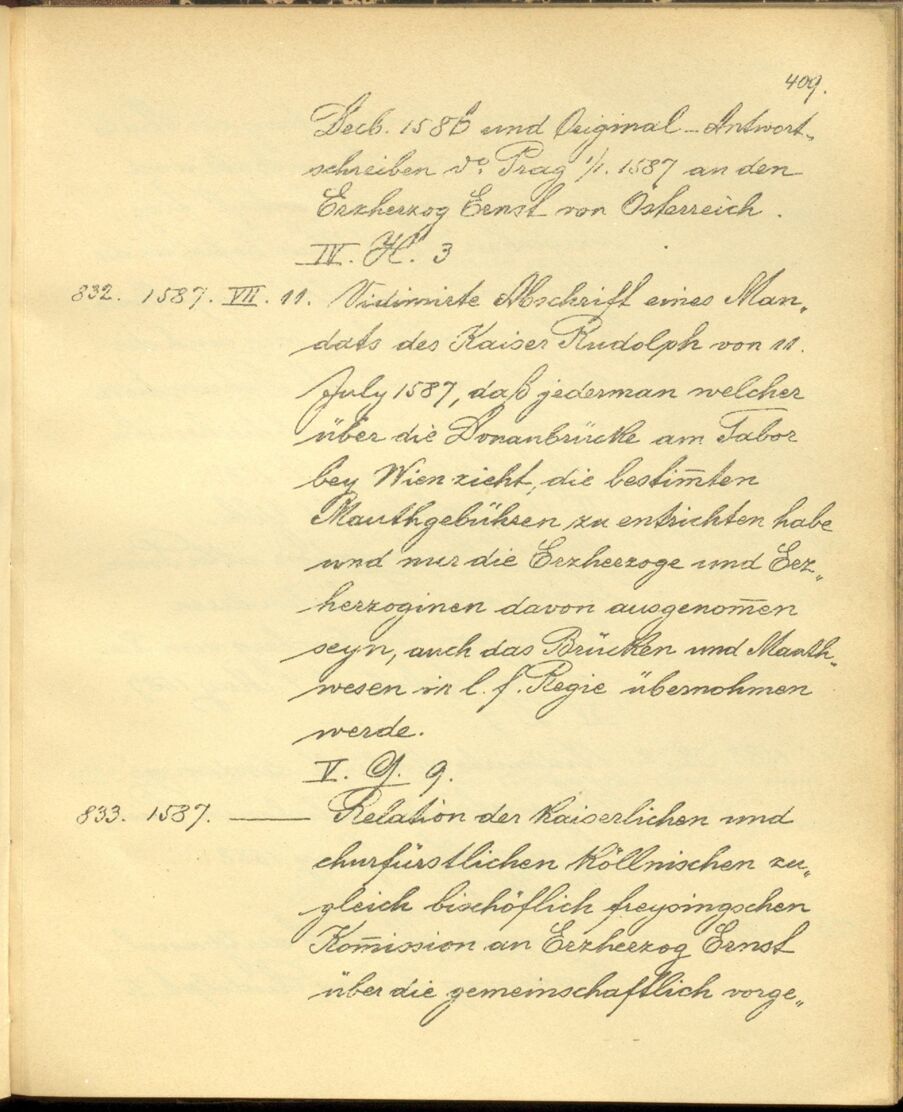 409.
Decb. 1586 und Original-Antwort„
schreiben do. Prag 1/1. 1587 an den
Erzherzog Ernst von Österreich.
IV. H. 3
832. 1587. VII. 11. Vidimirte Abschrift eines Man„
dats des Kaiser Rudolph von 11.
July 1587, daß jederman welcher
über die Donaubrücke am Tabor
bey Wien zieht, die bestim̅ten
Mauthgebühren zu entrichten habe
und nur die Erzherzoge und Erz„
herzoginen davon ausgenom̅en
seyn, auch das Brücken und Mauth„
wesen in l. f. Regie übernohmen
werde.
V. G. 9.
833. 1587. — Relation der kaiserlichen und
churfürstlichen Köllnischen zu„
gleich bischöflich freysingschen
Kom̅ission an Erzherzog Ernst
über die gemeinschaftlich vorge„